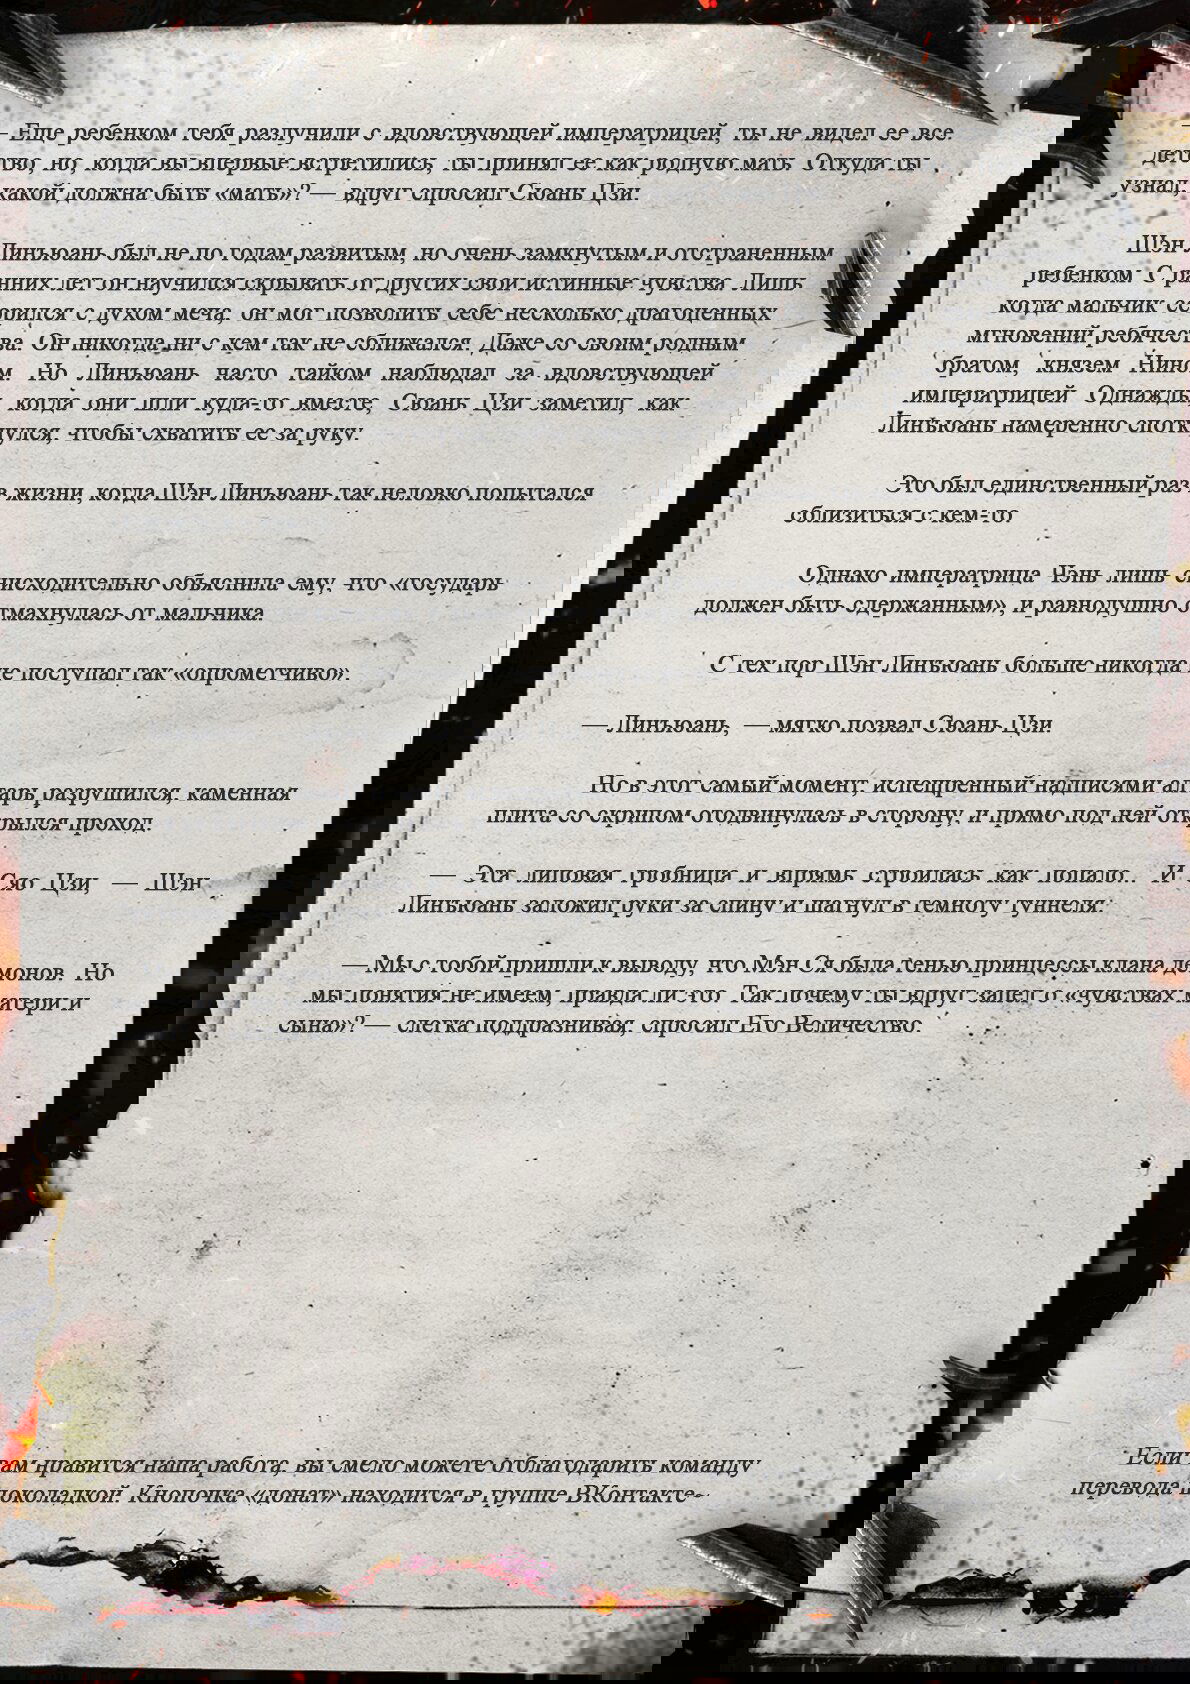 — Еще ребенком тебя разлучили с вдовствующей императрицей, ты не видел ее все
детство, но, когда вы впервые встретились, ты принял ее как родную мать. Откуда ты
узнал, какой должна быть «мать»? — вдруг спросил Сюань Цзи.
Шэн Линъюань был не по годам развитым, но очень замкнутым и отстраненным
ребенком. С ранних лет он научился скрывать от других свои истинные чувства. Лишь
когда мальчик ссорился с духом меча, он мог позволить себе несколько драгоценных
мгновений ребячества. Он никогда ни с кем так не сближался. Даже со своим родным
братом, князем Нином. Но Линъюань часто тайком наблюдал за вдовствующей
императрицей. Однажды, когда они шли куда-то вместе, Сюань Цзи заметил, как
Линъюань намеренно споткнулся, чтобы схватить ее за руку.
Это был единственный раз в жизни, когда Шэн Линъюань так неловко попытался
сблизиться с кем-то.
Однако императрица Чэнь лишь снисходительно объяснила ему, что «государь
должен быть сдержанным», и равнодушно отмахнулась от мальчика.
С тех пор Шэн Линъюань больше никогда не поступал так «опрометчиво».
— Линъюань, — мягко позвал Сюань Цзи.
Но в этот самый момент, испещренный надписями алтарь разрушился, каменная
плита со скрипом отодвинулась в сторону, и прямо под ней открылся проход.
— Эта липовая гробница и впрямь строилась как попало… И Сяо Цзи, — Шэн
Линъюань заложил руки за спину и шагнул в темноту туннеля.
— Мы с тобой пришли к выводу, что Мэн Ся была тенью принцессы клана демонов. Но
мы понятия не имеем, правда ли это. Так почему ты вдруг запел о «чувствах матери и
сына»? — слегка поддразнивая, спросил Его Величество.
Если вам нравится наша работа, вы смело можете отблагодарить команду
перевода шоколадкой. Кнопочка «донат» находится в группе ВКонтакте~